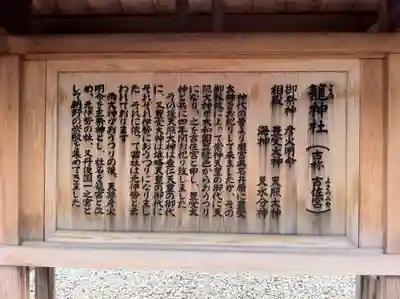 籠神社(古称 吉佐宮)
御祭神 彦火明命
相殿 豊受大神 天照大神
海神 天水分神
神代の昔より
大神をお祀りして来ましたが、その
御縁故に依って崇神天皇の御代に天
照大神が大和国笠縫邑からおうつり
になり、之を吉佐宮と申し、豊受大
神と共に四年間お祀り致しました
その後天照大神は垂仁天皇の御代
に、又豊受大神は雄略天皇の御代に
それぞれ伊勢におうつりになりまし
た。それに依って當社は元伊勢と云
われております
両大神がおうつりの後、天孫彦火
明命を主祭神とし、社名を籠宮と改
め、元伊勢の社、又丹後國一之宮と
して朝野の崇敬を集めてきました